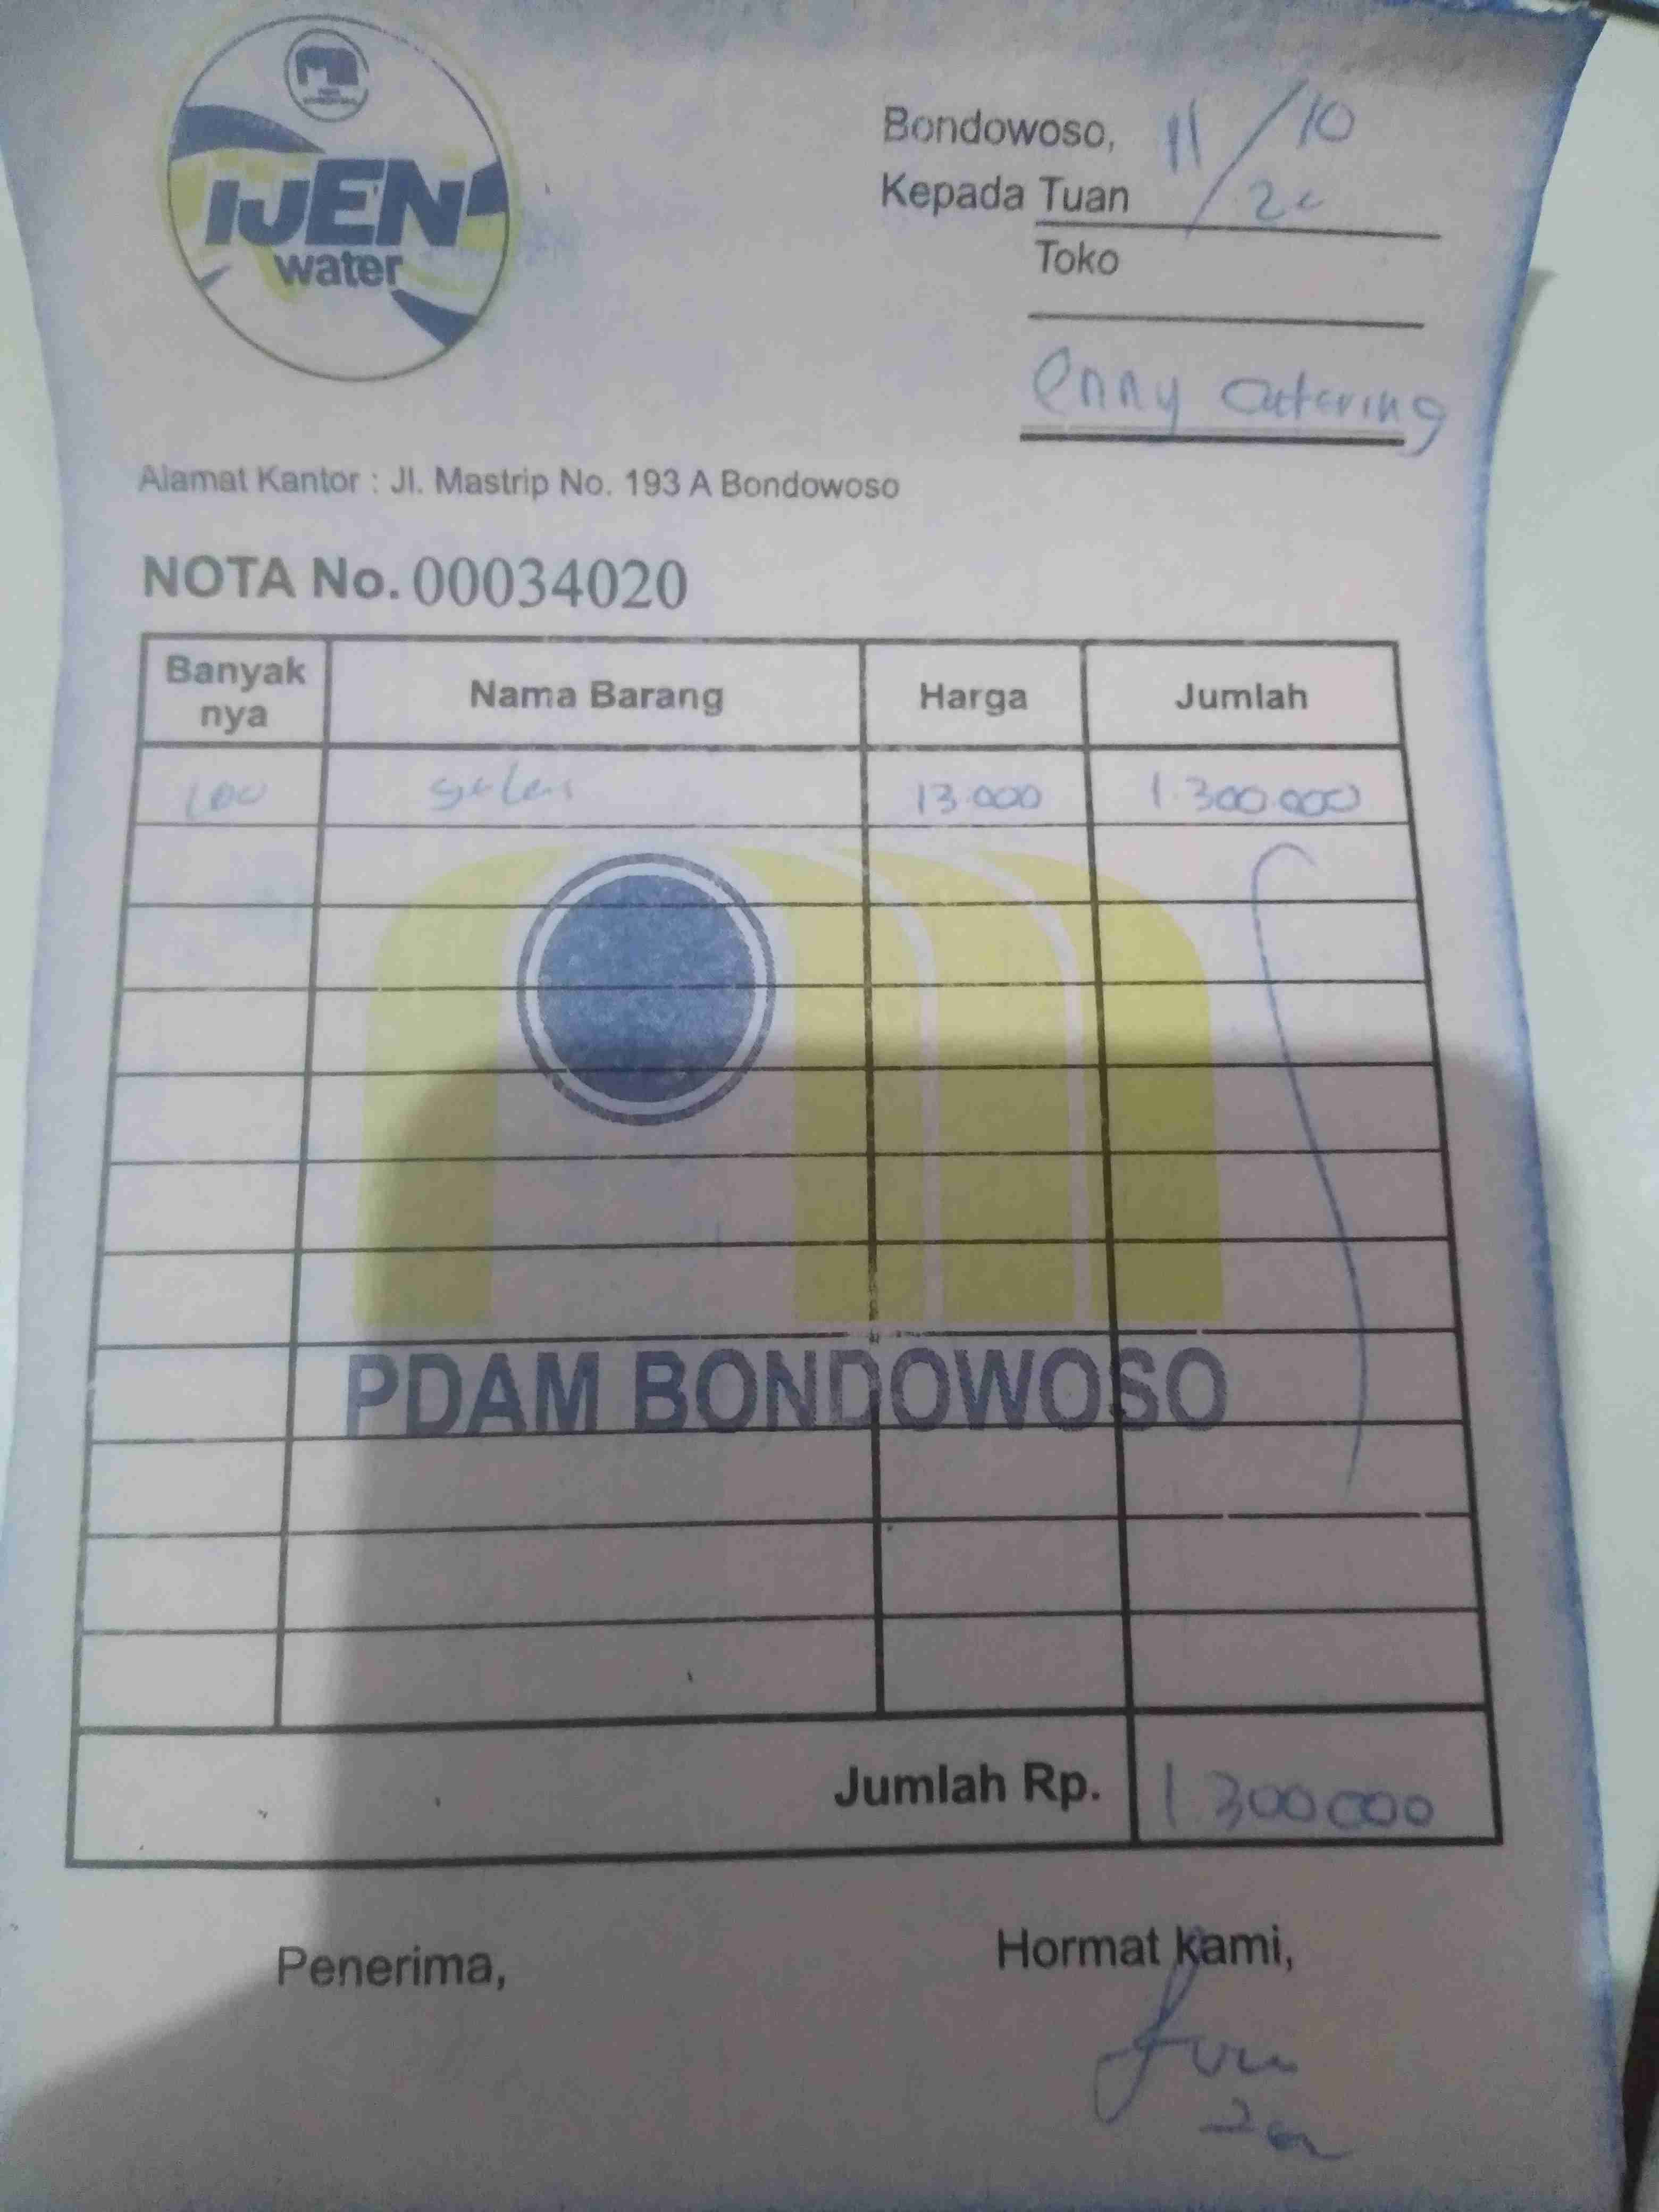 IJEN
water
Bondowoso, 11/10
Kepada Tuan
Toko
Enny Catering
Alamat Kantor : Jl. Mastrip No. 193 A Bondowoso
NOTA No. 00034020
Banyak nya Nama Barang Harga Jumlah
100 galon 13.000 1.300.000
PDAM BONDOWOSO
Jumlah Rp. 1.300.000
Penerima, Hormat kami,